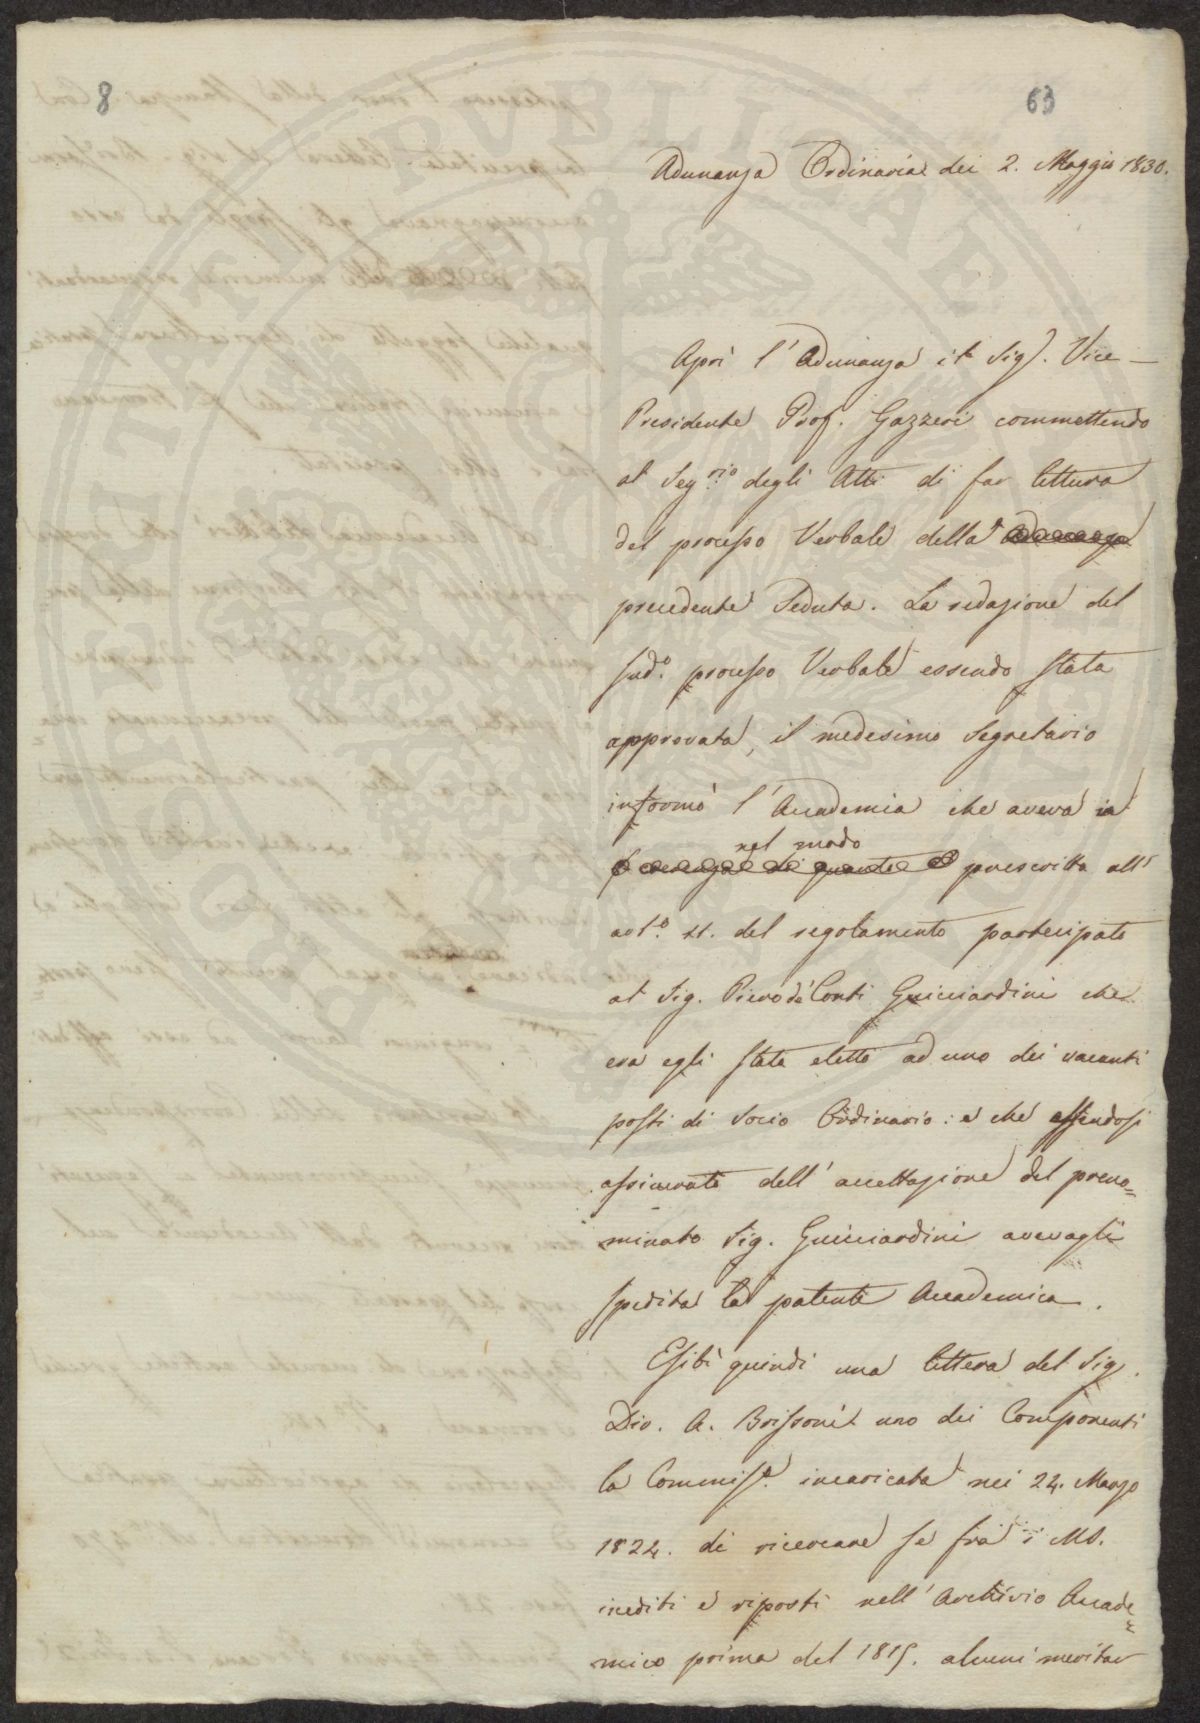 8
63
Adunanza Ordinaria dei 2. Maggio 1830.
Aprì l'Adunanza il Sigr. Vice-
Presidente Prof. Gazzeri commettendo
al Segrio degli Atti di far lettura
del processo Verbale della Adunanza
precedente Seduta. La redazione del
sudo. processo Verbale essendo stata
approvata, il medesimo Segretario
informò l'Accademia che aveva in
nel modo
prescritto all'
arto. 11. del regolamento partecipato
al Sig. Piero de' Conti Guicciardini che
era egli stato eletto ad uno dei vacanti
posti di Socio Ordinario: e che essendosi
assicurato dell'accettazione del preno=
minato Sig. Guicciardini avevagli
spedita la patente Accademica.
Esibì quindi una lettera del Sig.
Dio. A. uno dei Componenti
la Commisse. incaricata nei 24. Marzo
1824. di ricercare se fra i MS.
inediti e riposti nell'Archivio Accade=
mico prima del 1815. alcuni meritar